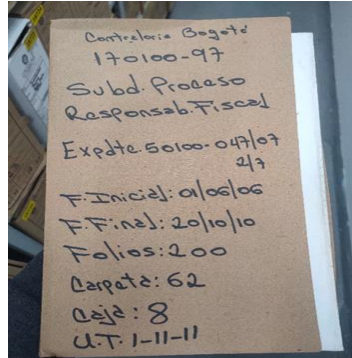 Contraloria Bogotá
170100-97
Subd. Proceso
Responsab. Fiscal
Expdte. 50100-047/07
2/7
F. Inicial: 01/06/06
F. Final: 20/10/10
Folios: 200
Carpeta: 62
Caja: 8
U.T: 1-11-11